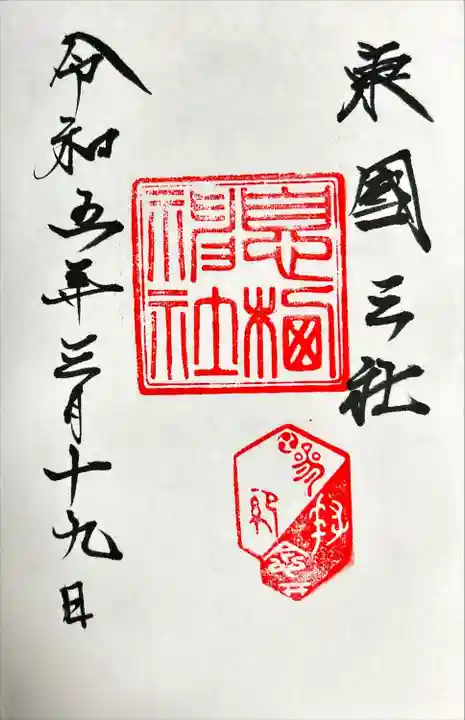 東國三社
息栖
神社
参拝
記念
令和五年三月十九日